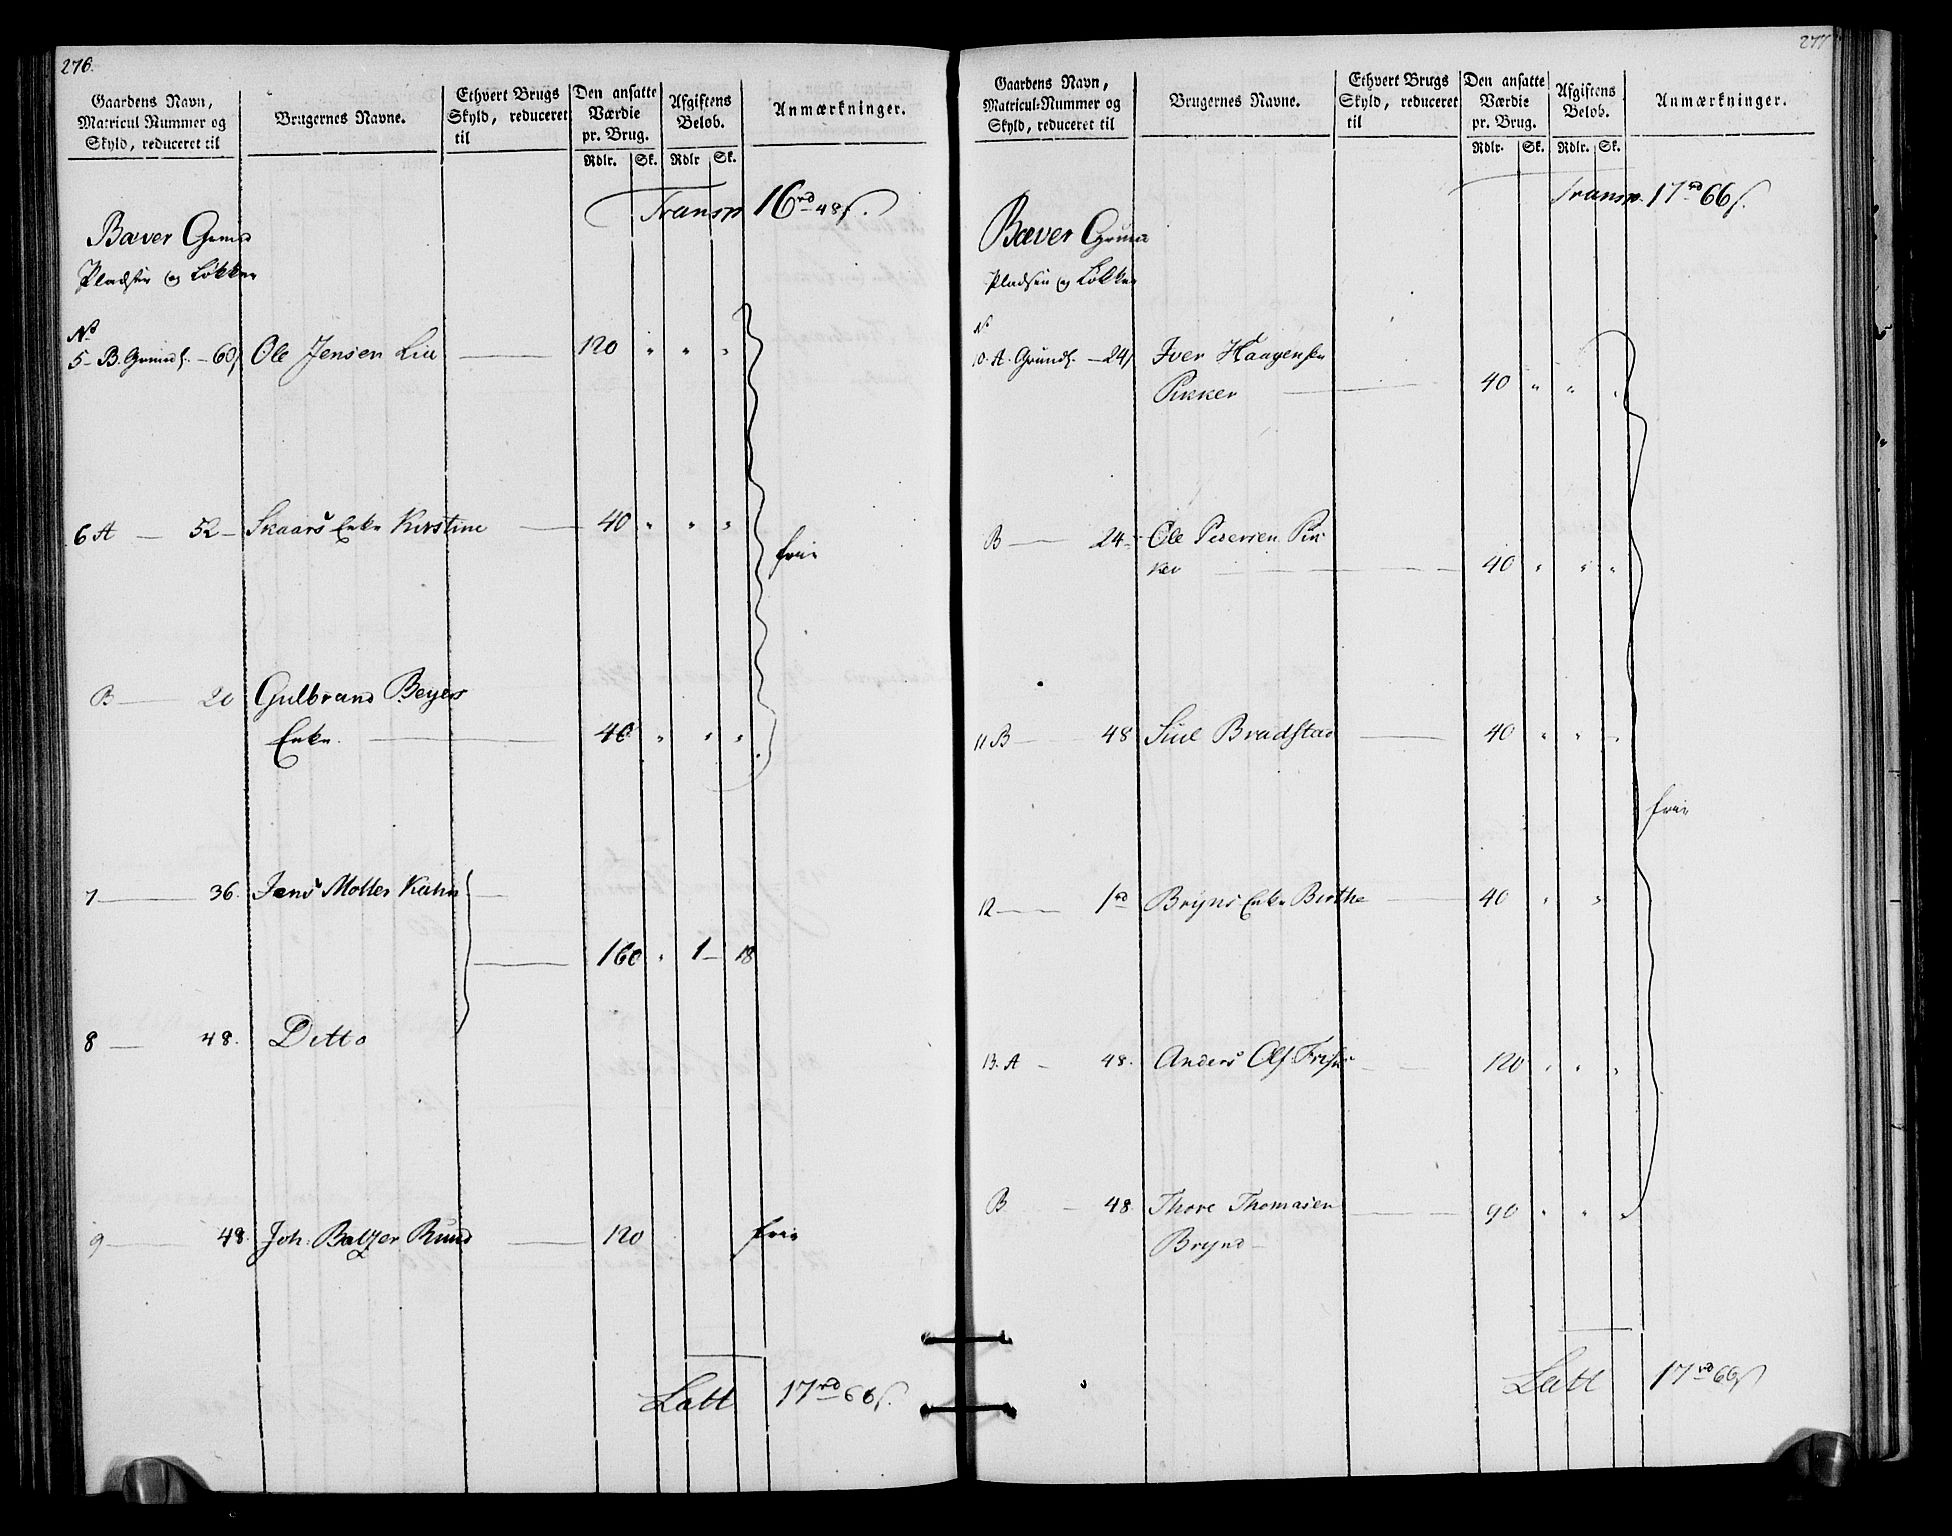 276.
Gaardens Navn,
Matricul Nummer og
Skyld, reduceret til
Brugernes Navne.
Ethvert Brugs
Skyld, reduceret
til
Den ansatte
Værdie
pr. Brug.
Rdlr. Sk.
Afgiftens
Beløb.
Rdlr Sk.
Anmærkninger.
Transp. 16 rd 48 s.
Bæver Grund
Pladser og Løkker
No
5 - B. Grunds. - 60 s Ole Jensen Lie 120 " " "
6 A - 52 - Skaars Enke Kirstine 40 " " "
frie
B 20 Gulbrand Beyers
Enke. 40 " " "
7 36. Jens Moller Kahn
160 " 1 - 18
8 48. Ditto
9 48. Joh: Balzer Rund 120 frie
Latt 17 rd 66 s.
277
Gaardens Navn,
Matricul-Nummer og
Skyld, reduceret til
Brugernes Navne.
Ethvert Brugs
Skyld, reduceret
til
Den ansatte
Værdie
pr. Brug.
Rdlr. Sk.
Afgiftens
Beløb.
Rdlr. Sk.
Anmærkninger.
Transp. 17 rd 66 s.
Bæver Grund
Pladser og Løkker
No
10. A. Grunds. - 24 s Iver Haagensen
Pukker 40 " " "
B 24 - Ole Petersen
ker 40 " " "
11 B 48 Siul Bradstad 40 " " "
frie
12 1 rd Bryns Enke Birthe 40 " "
13. A - 48. Anders Ols. 120 " " "
B - 48 Thore Thomasen 90 " " "
Brynd
Latt 17 rd 66 s